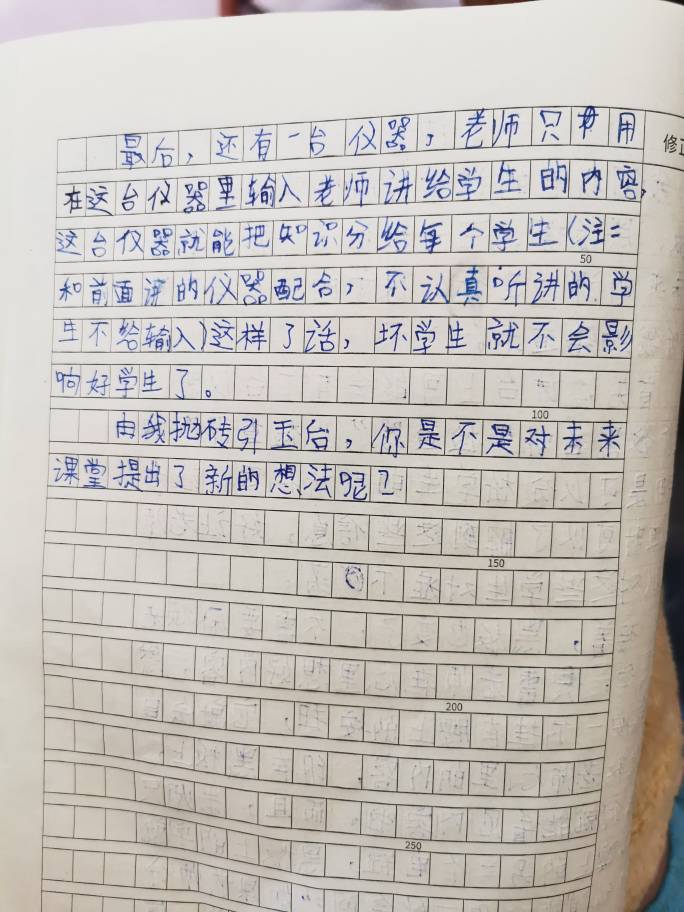 最后，还有一台仪器，老师只用
修正
在这台仪器里输入老师讲给学生的内容，
这台仪器就能把知识分给每个学生（注：
50
和前面讲的仪器配合，不认真听讲的学
生不给输入）这样了话，坏学生就不会影
响好学生了。
100
由我抛砖引玉后，你是不是对未来
课堂提出了新的想法呢？
150
200
250